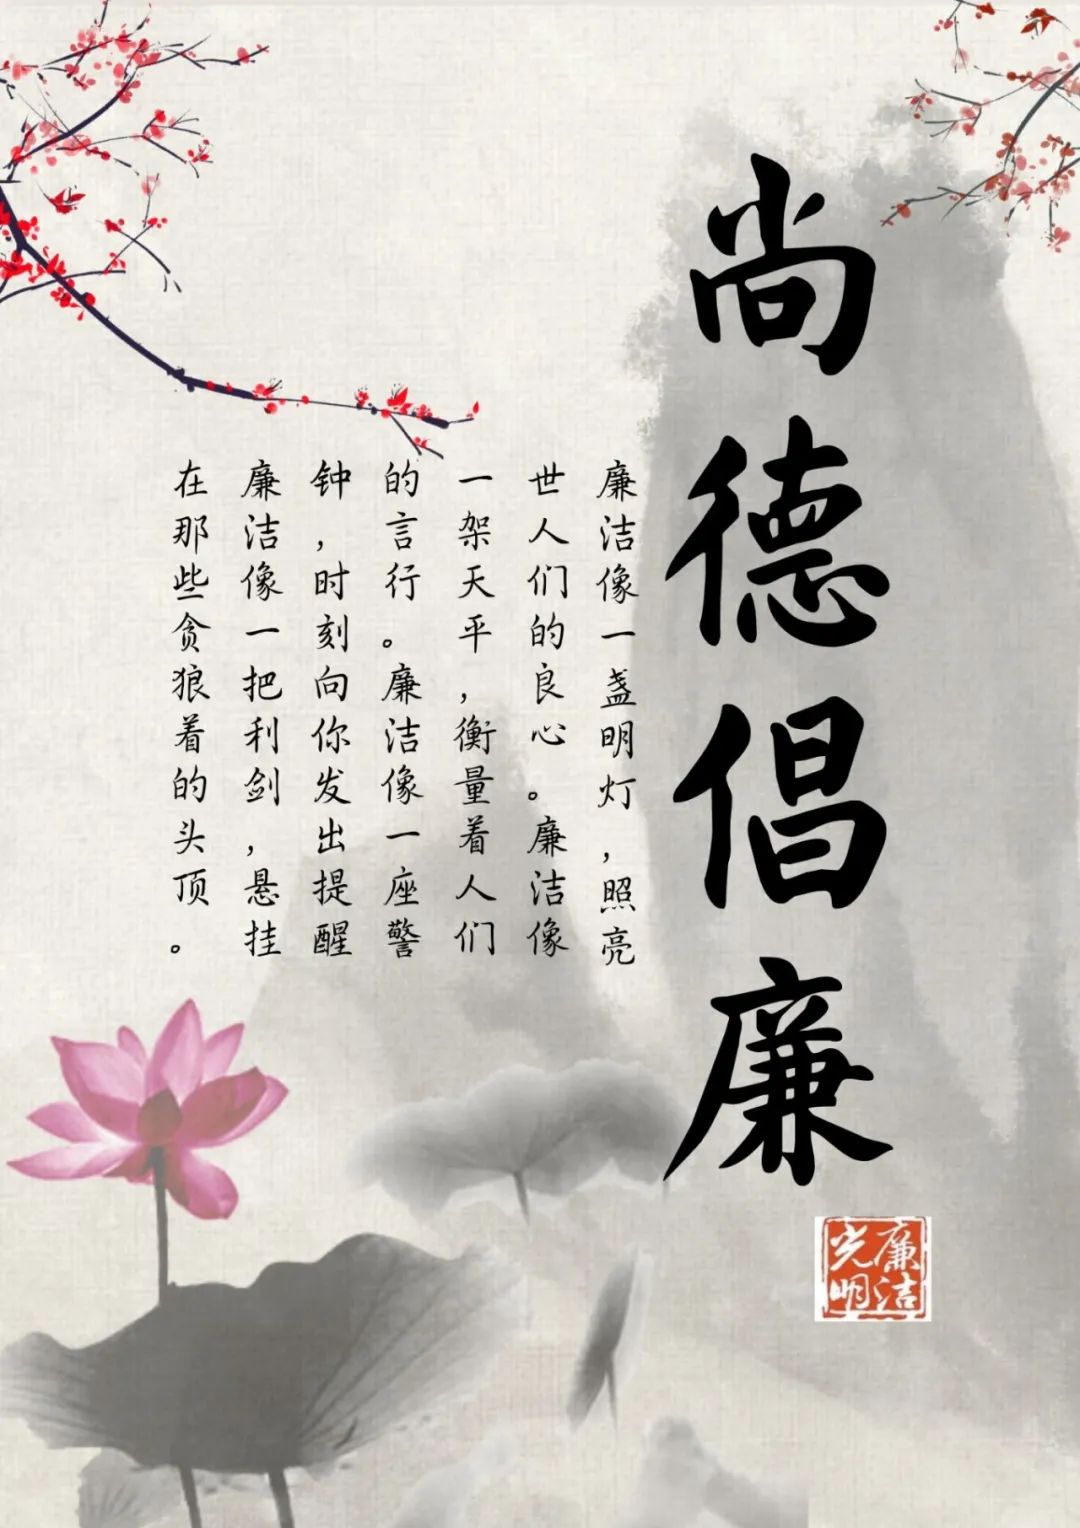 尚德倡廉
廉洁像一盏明灯，照亮
世人们的良心。廉洁像
一架天平，衡量着人们
的言行。廉洁像一座警
钟，时刻向你发出提醒
廉洁像一把利剑，悬挂
在那些贪狼着的头顶。
廉洁
光明